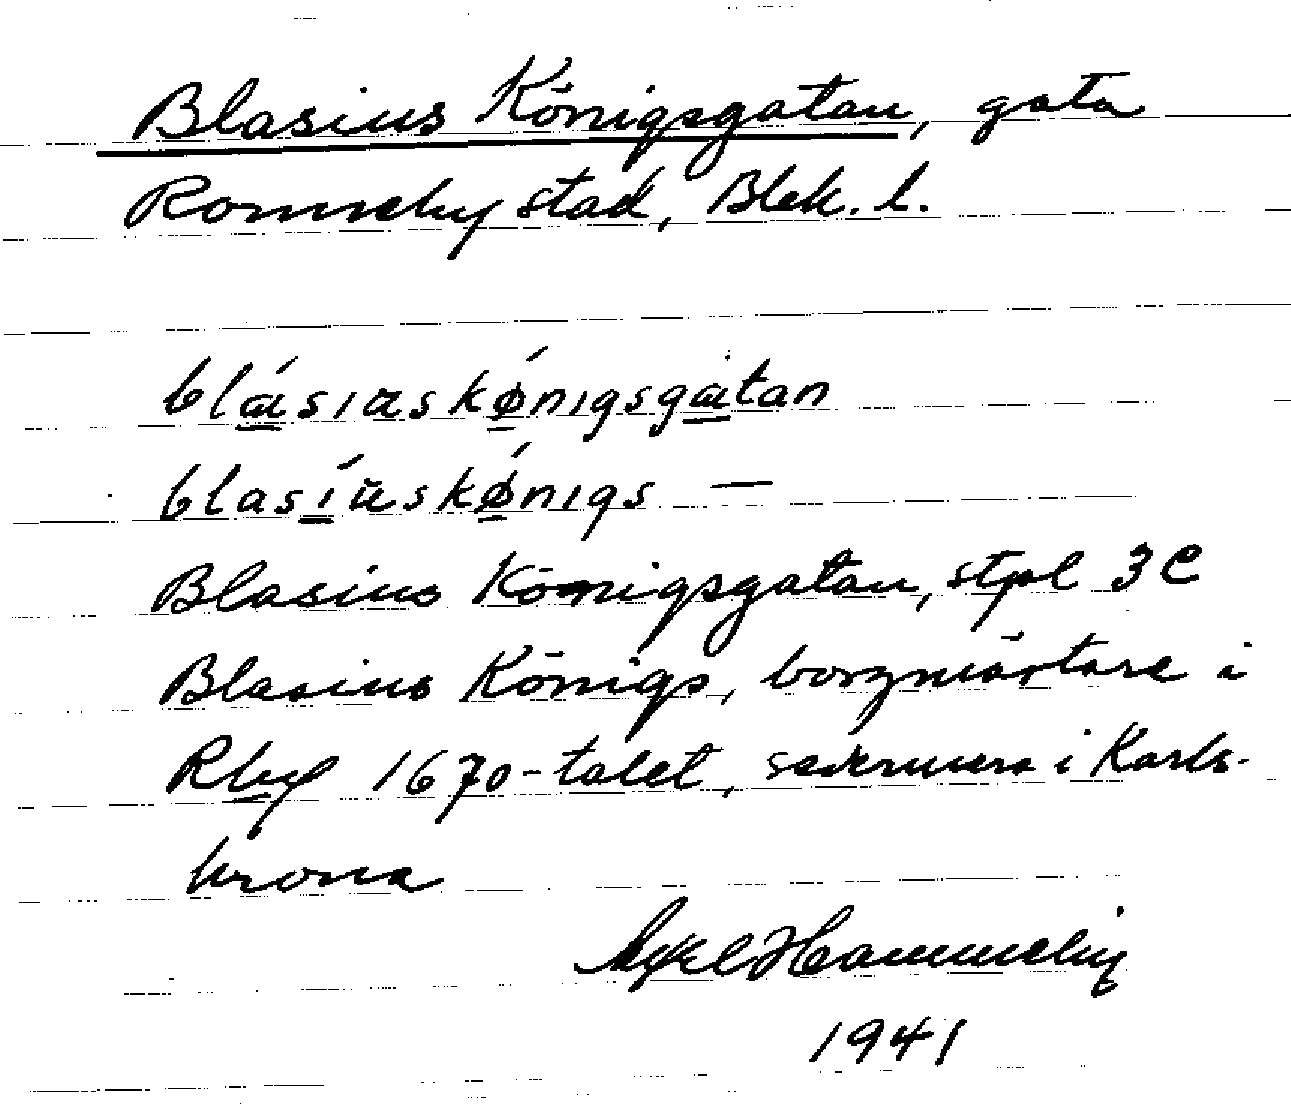 Blasius Königsgatan, gata
Ronneby stad, Blek. l.
blásıuskǿnıgsgatan
blasíuskǿnıgs —
Blasius Königsgatan, stpl 3 C
Blasius Königs, borgmästare i
Rby 1670-talet, sedermera i Karls-
krona
Axel Hammeby
1941